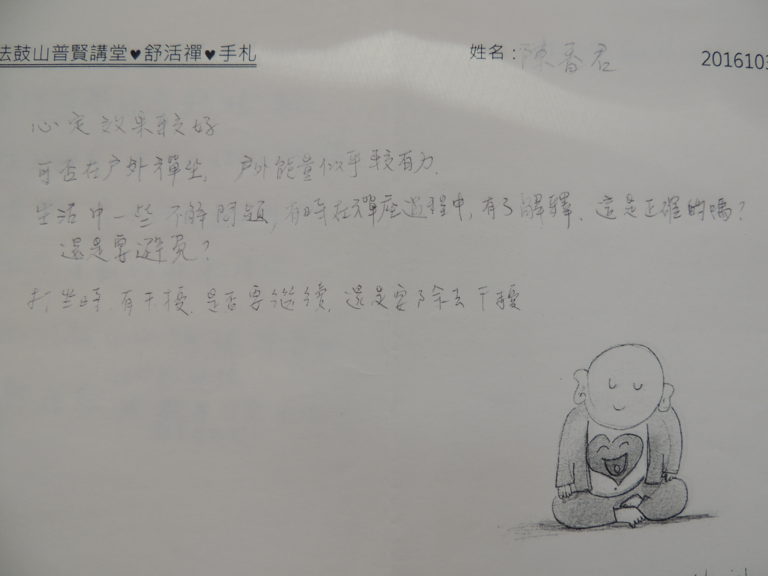 法鼓山普賢講堂♥舒活禪♥手札 姓名： 2016103
心定效果較好
可否在户外禪坐, 户外能量似乎較有力.
生活中一些不解問題, 有時在禪座過程中, 有了解釋. 這是正確的嗎?
還是要避免?
打坐時有干擾. 是否要繼續, 還是要除去干擾